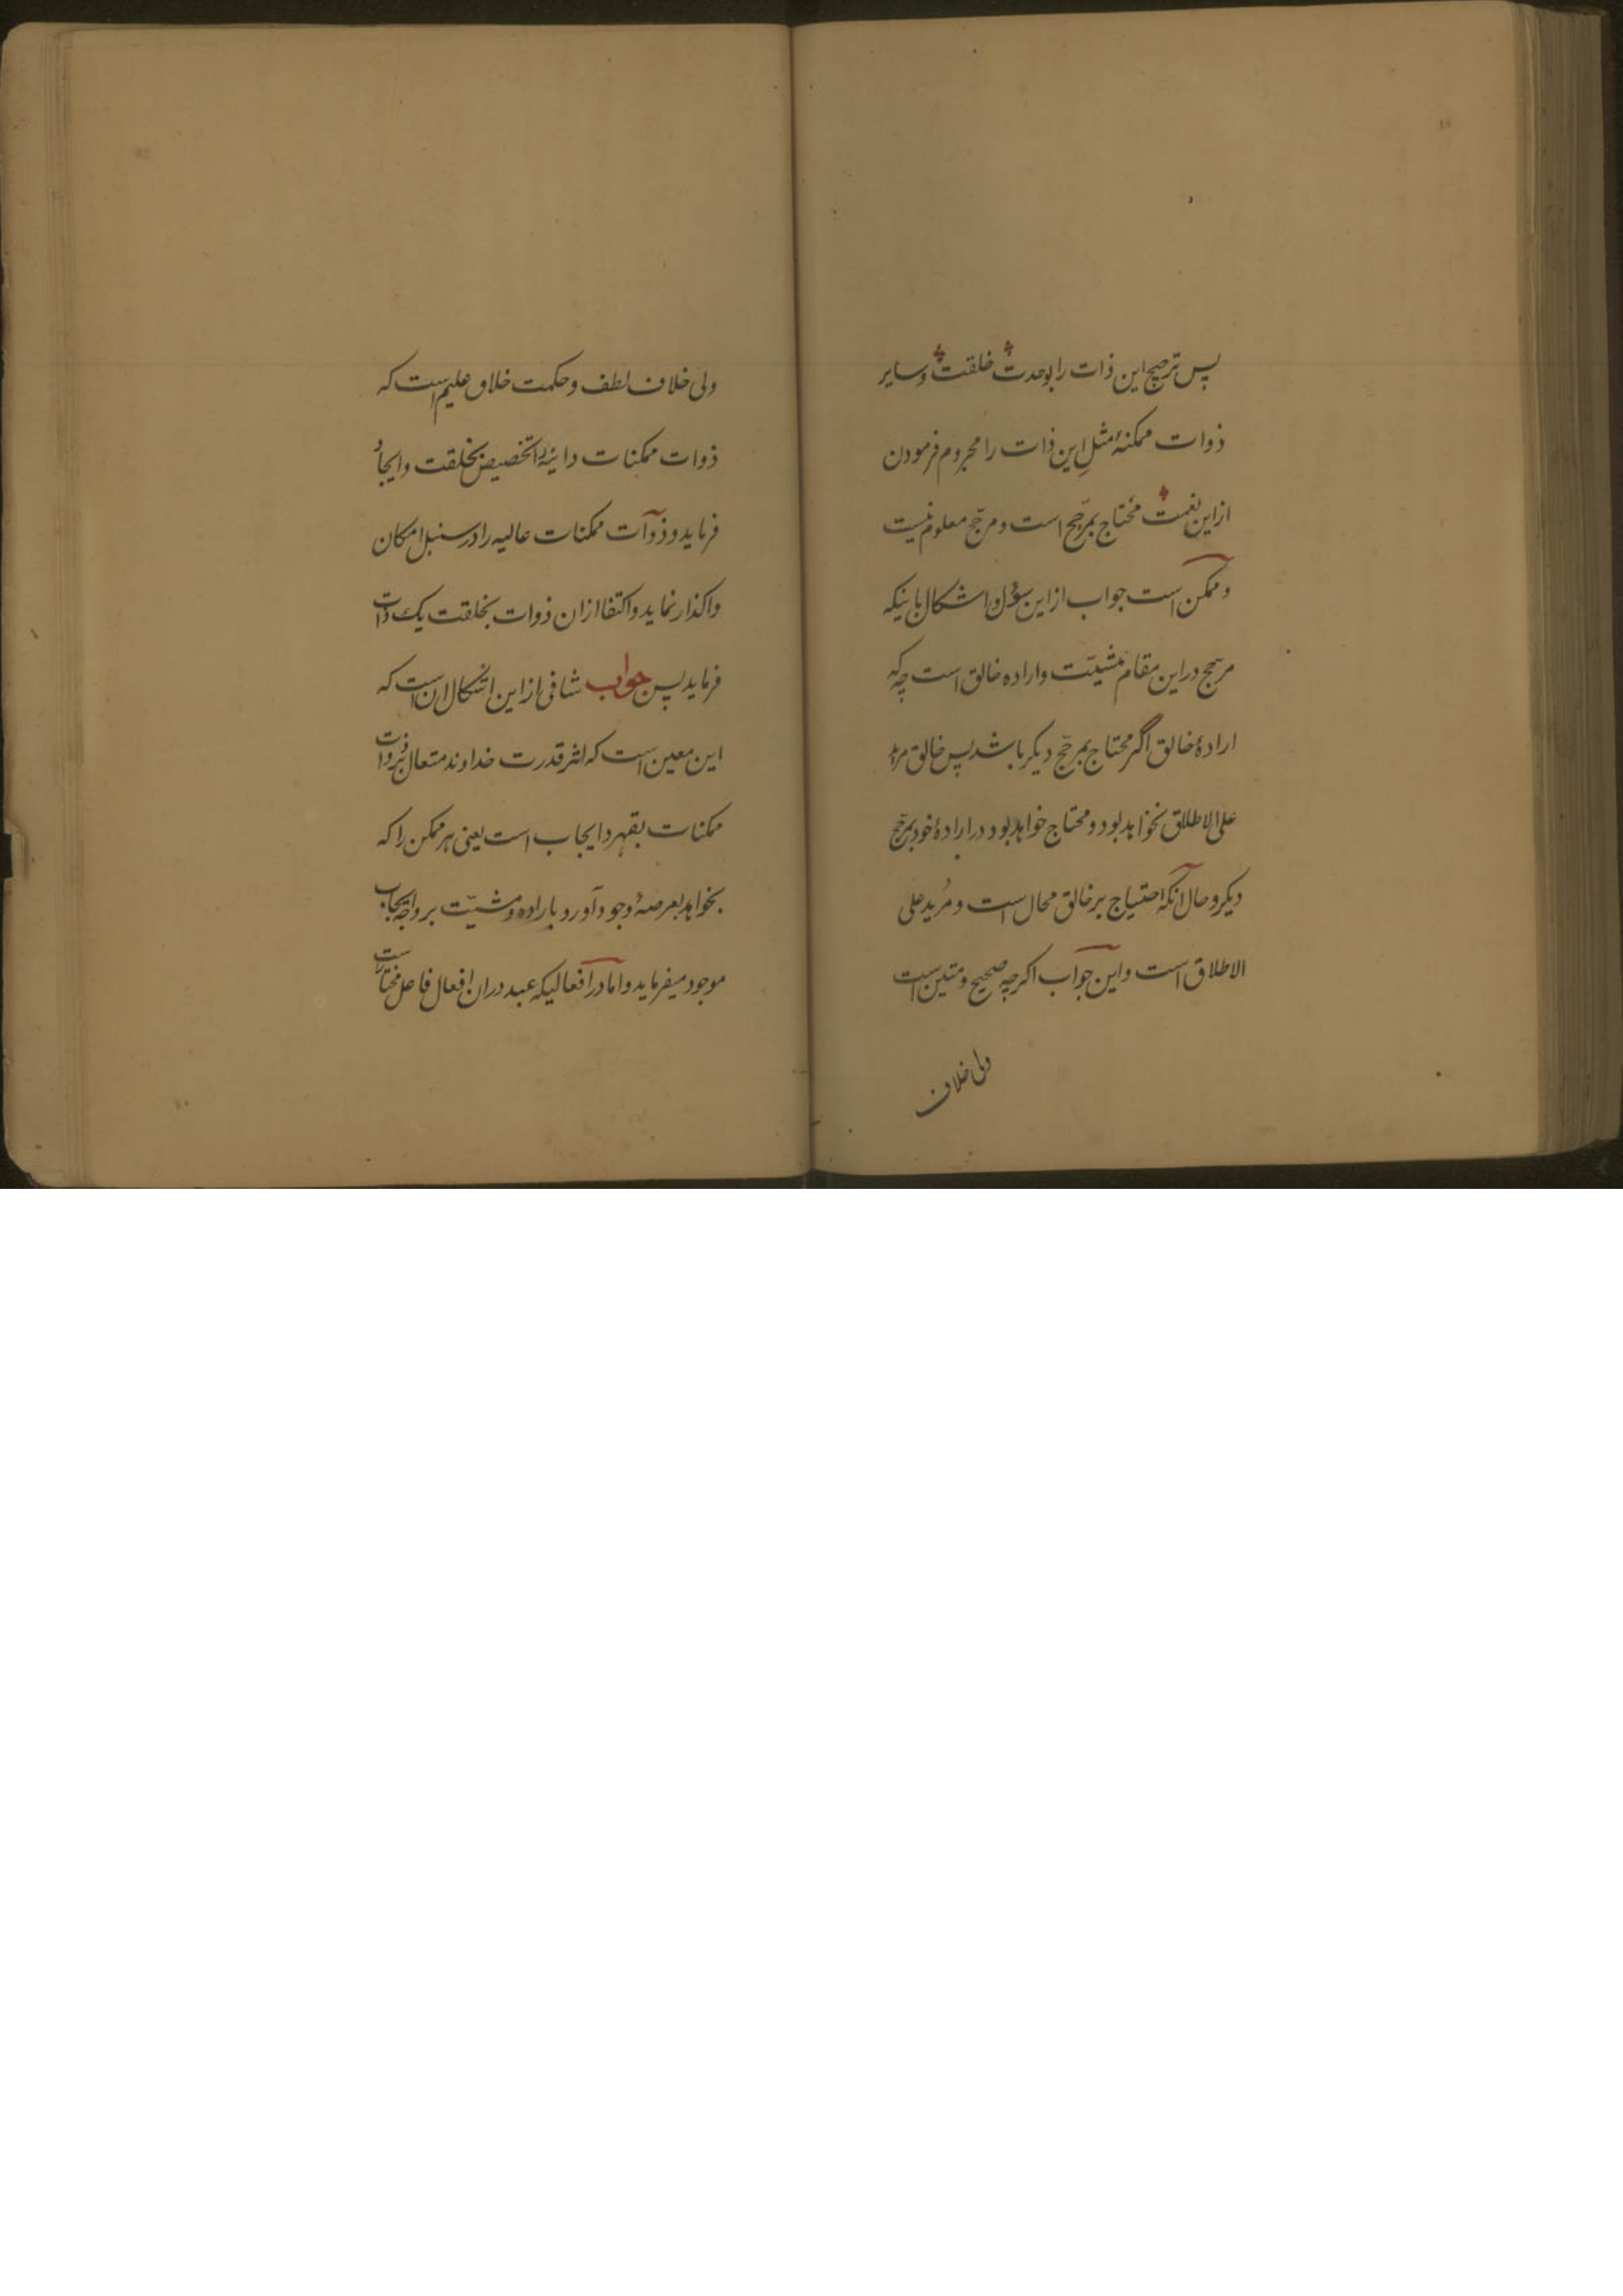 پس ترجیح این ذات را بوحدت خلقت وسایر
ذوات ممکنهٔ مثلِ این ذات را محروم فرمودن
ازاین نعمت محتاج بمرجّح است ومرجّح معلوم نیست
وممکن است جواب ازاین سؤال واشکال باینکه
مرجّح دراین مقام مشیّت واراده خالق است چه که
ارادهٔ خالق اگر محتاج بمرجّح دیکر باشد پس خالق مرید
علی الاطلاق نخواهد بود ومحتاج خواهد بود در ارادهٔ خود بمرجّح
دیکر وحال آنکه احتیاج بر خالق محال است ومُرید علی
الاطلاق است واین جواب اکرچه صحیح ومتین است
ولی خلاف
ولی خلاف لطف وحکمت خلاق علیم است که
ذوات ممکنات دانیه را تخصیص بخلقت وایجاد
فرماید وذوات ممکنات عالیه را در سنبل امکان
واکذار نماید واکتفا ازان ذوات بخلقت یک ذات
فرماید پس جواب شافی ازاین اشکال ان است که
این معین است که اثر قدرت خداوند متعال بر ذوات
ممکنات بقهر وایجاب است یعنی هر ممکن را که
بخواهد بعرصهٔ وجود آورد باراده ومشیّت بر وجه ایجاب
موجود میفرماید واما در افعالیکه عبد دران افعال فاعل مختار است